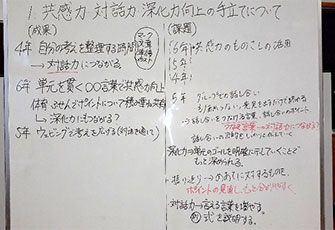 1. 共感力 対話力 深化力向上の手立てについて
(成果)
4年 自分の考えを整理する時間
→ 対話力につながる
6年 単元を貫く〇〇言葉で共感力向上
体育
→ 深化力にもつながる?
5年 ウェビングで考えを広げる
(課題)
6年 共感力のものさしの活用
5年
4年
5年 グループでの話し合い
→話し合いをつなげる言葉、話し合いのポイント
つなげ言葉→対話力につながる?
深化力→単元のゴールを明確に示していくことで
もっと深められる。
振り返り→めあてに対するもの。
ポイントの見直し、
対話力→言える言葉を増やす。
式を説明する。